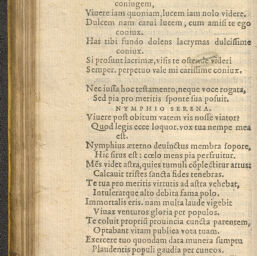 coniugem,
Viuere iam quoniam, lucem iam nolo videre.
Dulcem nam carui lucem, cum amisi te ego
coniux.
Has tibi fundo dolens lacrymas dulcissime
coniux.
Si prosunt lacrimæ, visis te ostende videri
Semper. perpetuo vale mi carissime coniux.
Nec iussa hoc testamento, neque voce rogata,
Sed pia pro meritis sponte sua posuit.
NYMPHIO SERENA.
Viuere post obitum vatem vis nosse viator?
Quod legis ecce loquor. vox tua nempe mea
est.
Nymphius æterno deuinctus membra sopore,
Hic situs est: cœlo mens pia perfruitur.
Mens videt astra, quies tumuli complectitur artus:
Calcauit tristes sancta fides tenebras.
Te tua pro meritis virtutis ad astra vehebat,
Intuleratque alto debita fama polo.
Immortalis eris. nam multa laude vigebit
Viuax venturos gloria per populos.
Te coluit proprium prouincia cuncta parentem,
Optabant vitam publica vota tuam.
Exercere tuo quondam data munera sumptu
Plaudentis populi gaudia per cuneos.